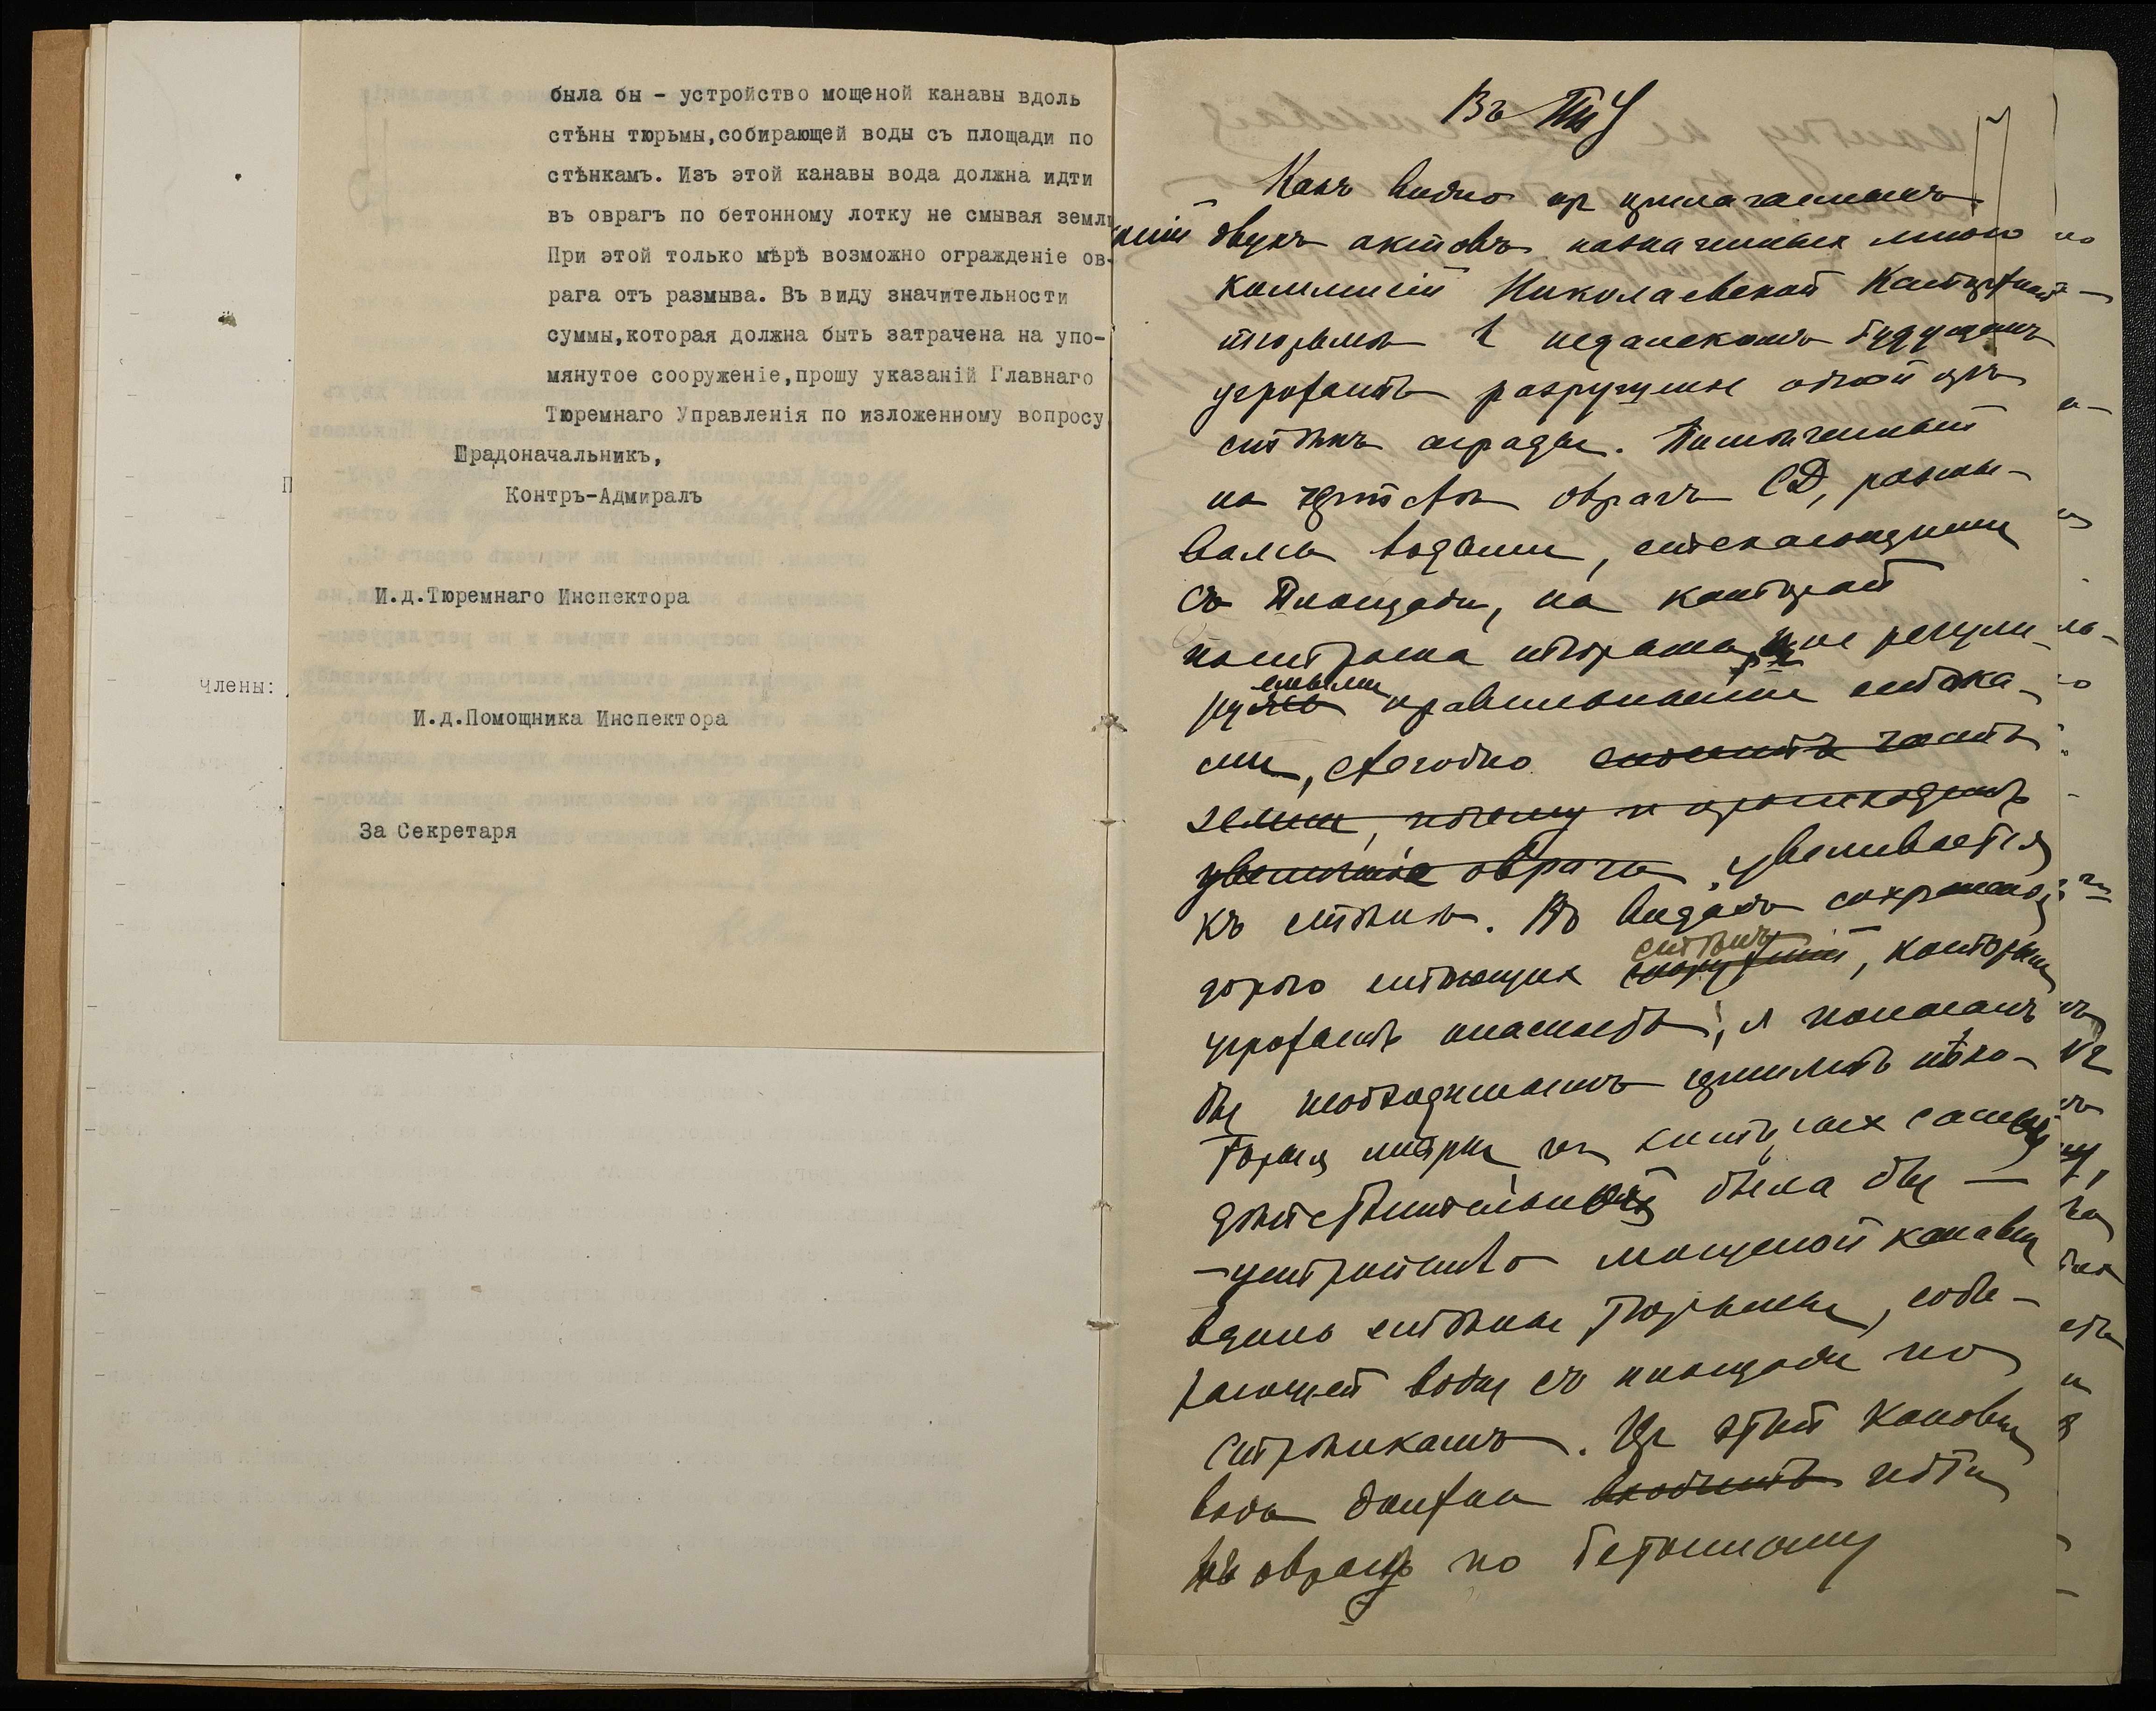 была бы - устройство мощеной канавы вдоль
стѣны тюрьмы,собирающей воды съ площади по
стѣнкамъ. Изъ этой канавы вода должна идти
въ оврагъ по бетонному лотку не смывая земли
При этой только мѣрѣ возможно огражденіе ов-
рага отъ размыва. Въ виду значительности
суммы,которая должна быть затрачена на упо-
мянутое сооруженіе,прошу указаній Главнаго
Тюремнаго Управленія по изложенному вопросу
Градоначальникъ,
Контръ-Адмиралъ
И.д.Тюремнаго Инспектора
Члены:
И.д.Помощника Инспектора
За Секретаря
Въ ГТУ
Какъ видно из прилагаемыхъ
копій двухъ актовъ назначенных мною
коммиссій Николаевской Каторжной
тюрьмы в недалекомъ будущемъ
угрожаетъ разрушеніе одной изъ
стѣнъ ограды. Помѣченный
на чертежѣ оврагъ СД, размы-
ваемый водами, стекающими
съ площади, на которой
построена тюрьма, и не регули-
руемыми правильными стока-
ми, ежегодно сноситъ часть
земли, почему и происходитъ
увеличеніе оврага увеливается
къ стѣнѣ. Въ видахъ сохраненія
дорого стоющихъ сооруженій стѣнъ, которымъ
угрожаетъ опасность, я полагалъ
бы необходимымъ принять нѣко-
торыя мѣры, из которых самой
действительной была бы —
- устройство мощеной канавы
вдоль стѣны тюрьмы, соби-
рающей воды съ площади по
стѣнкамъ. Из этой канавы
вода должна входить идти
въ оврагъ по бетонному